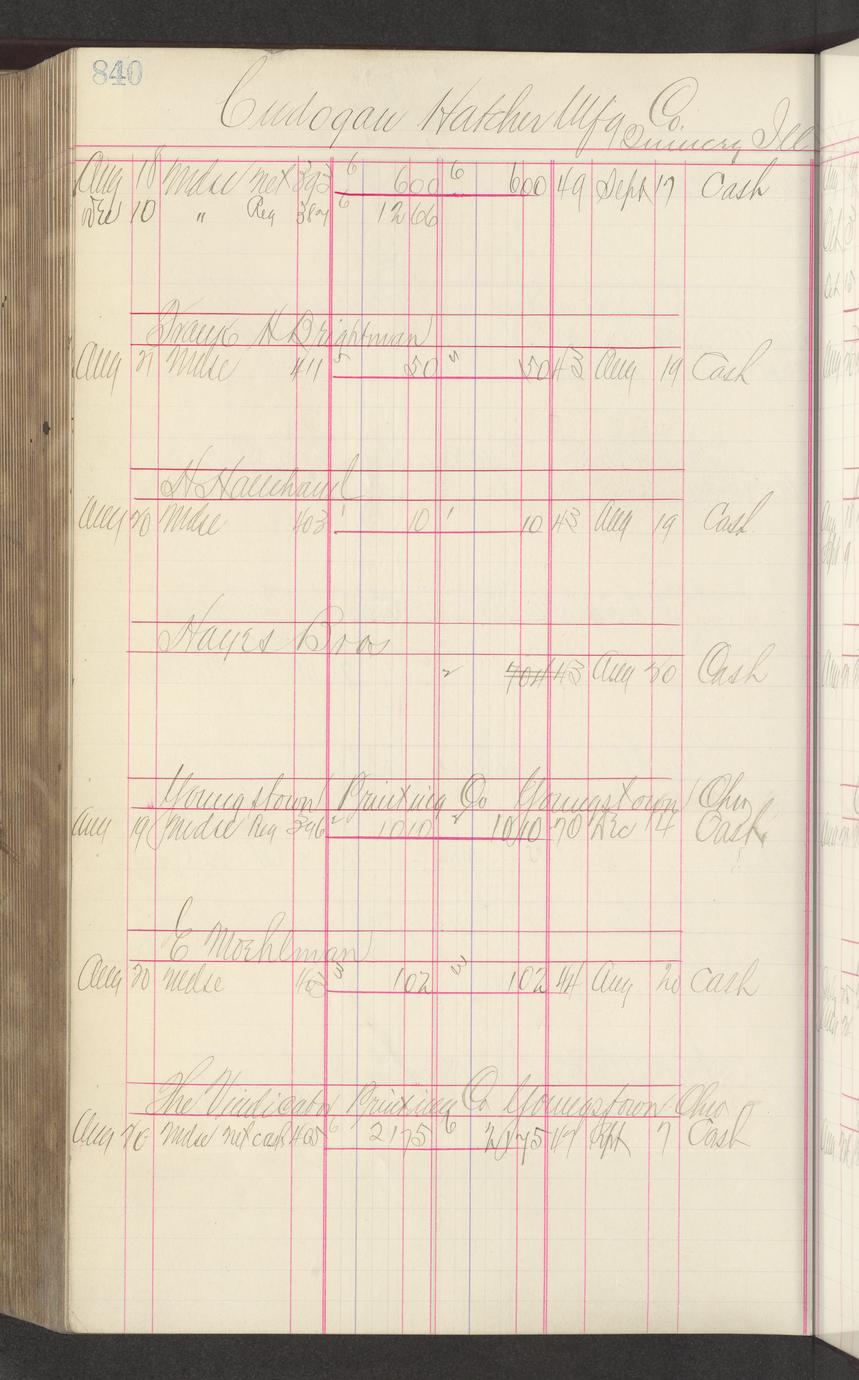 840
Cudogan Hatcher Mfg Co. Quincy Ill
Aug 18 Mdse net 393 6 600 6 600 49 Sept 17 Cash
Dec 10 " Reg 387 6 12 66
Frank H Brightman
Aug 21 Mdse 411 5 50 5 50 43 Aug 19 Cash
H
Aug 20 Mdse 403 1 10 1 10 43 Aug 19 Cash
Hayes Bros
2 704 43 Aug 20 Cash
Youngstown Printing Co Youngstown Ohio
Aug 19 Mdse Reg 396 2 10 10 2 10 10 70 Dec 14 Cash
E Moehlman
Aug 20 Mdse 3 102 3 102 44 Aug 20 Cash
The Vindicator Printing Co Youngstown Ohio
Aug 20 Mdse net cash 405 6 21 75 6 21 75 47 Sept 7 Cash